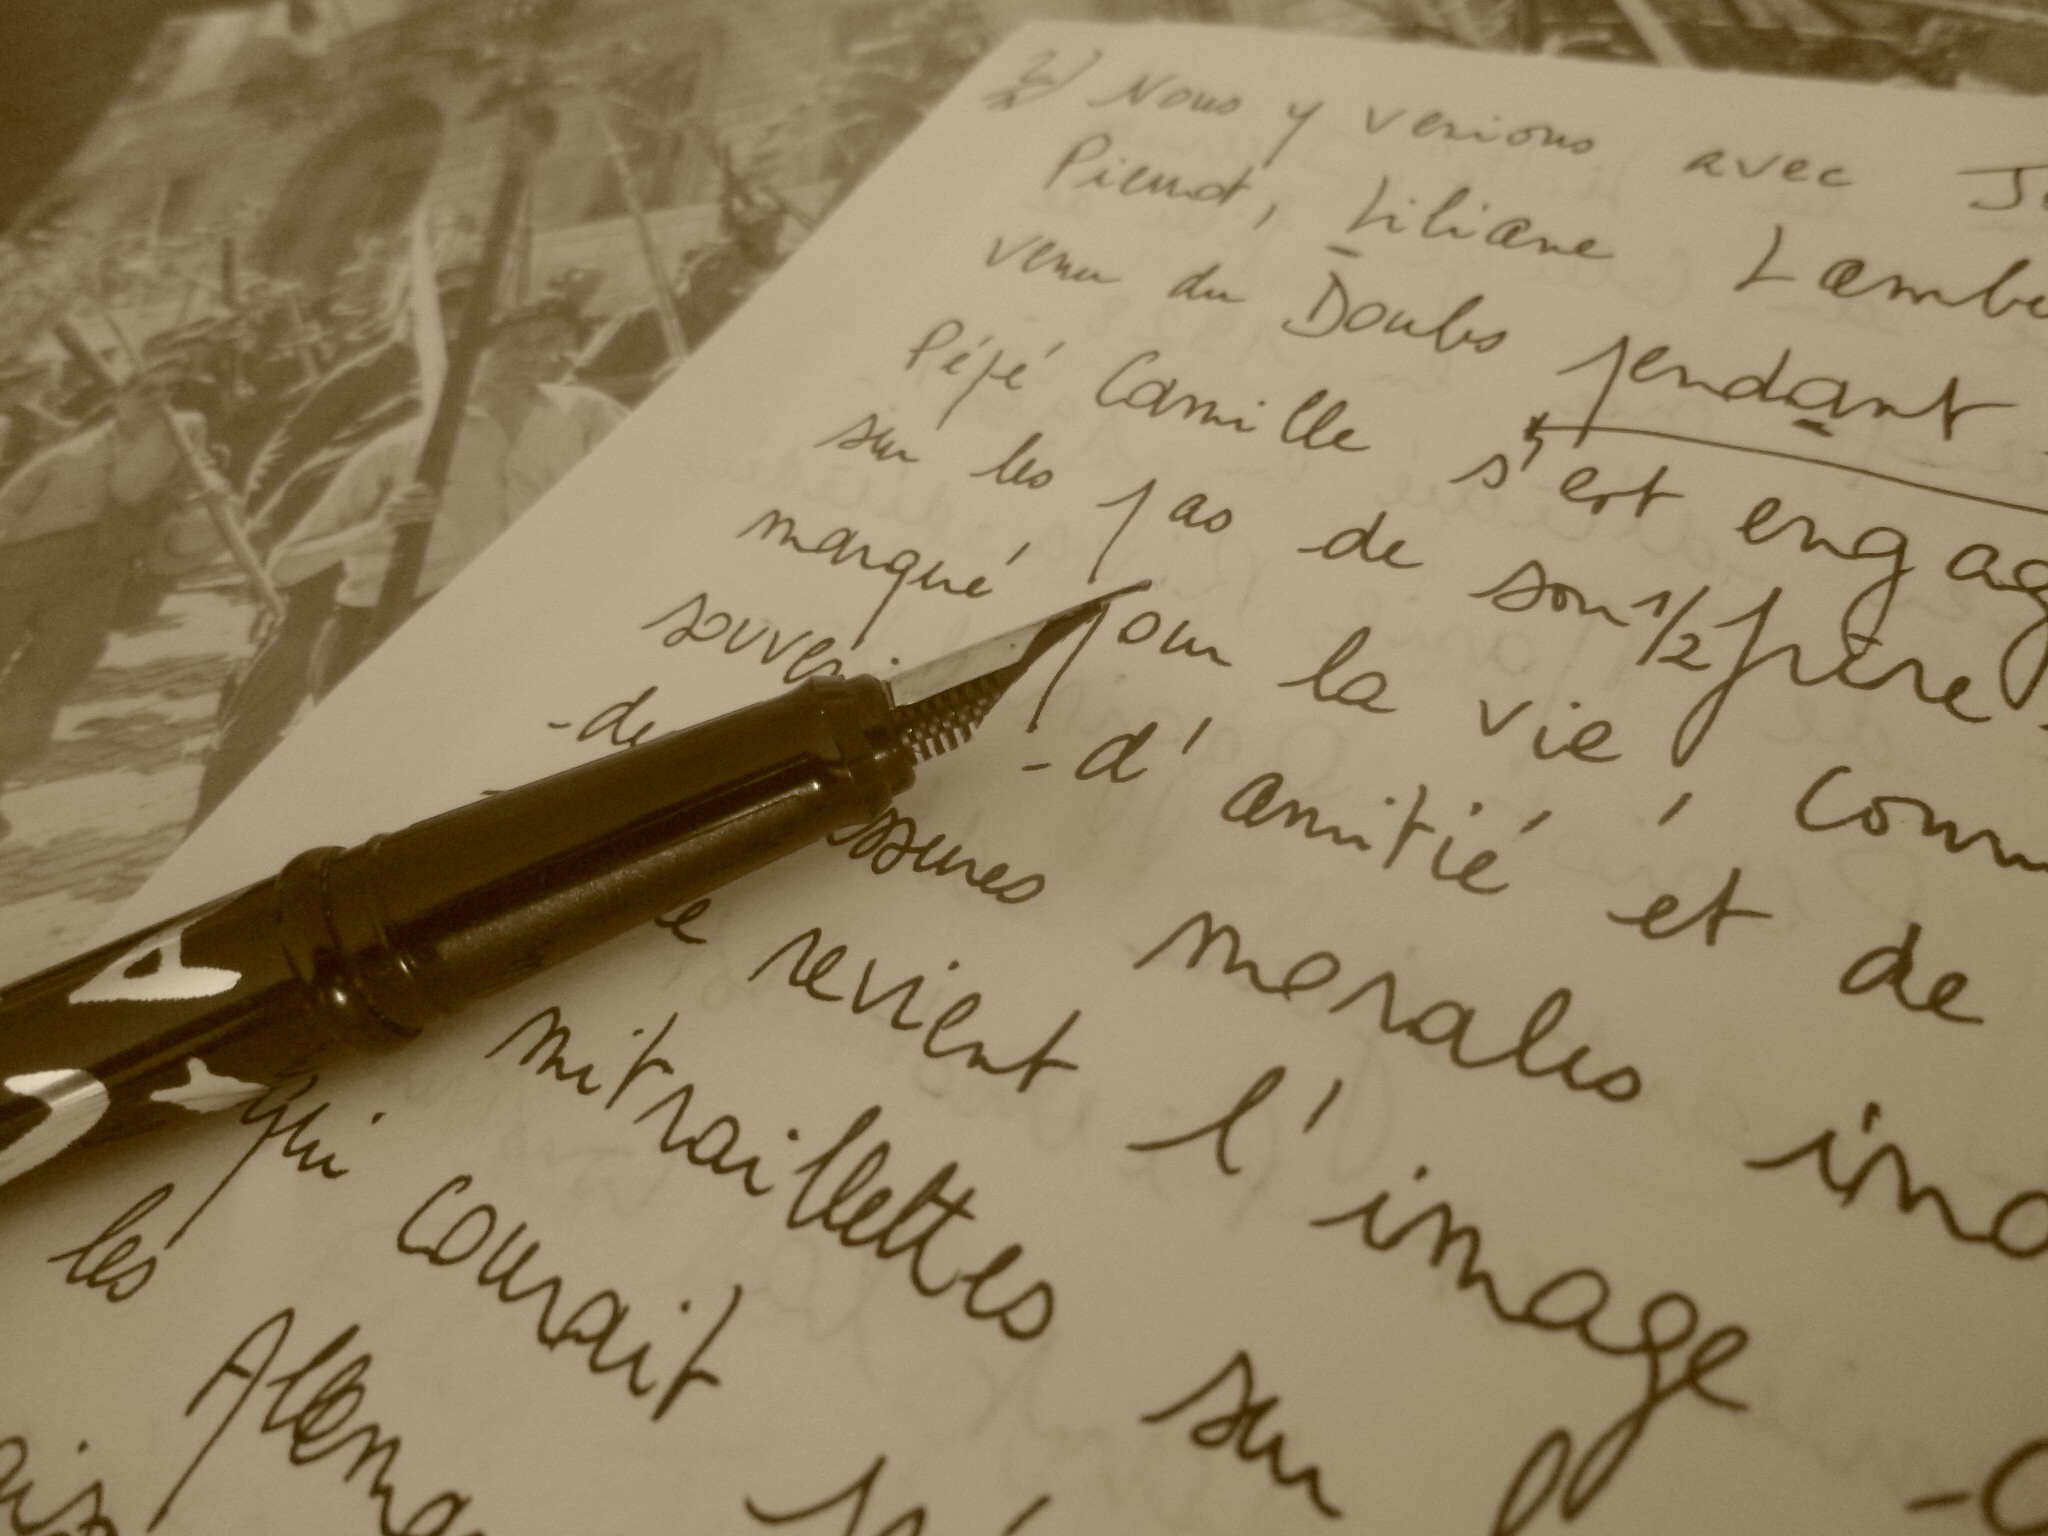 2) Nous y venions avec
Pierrot, Liliane Lambe
venu du Doubs pendant
Pépé Camille s'est engag
sur les pas de son 1/2 frère
marqué pour la vie, comm
souveni
-de -d'amitié et de
ssures morales
e revient l'image
mitraillettes sur
qui courait
les Allema